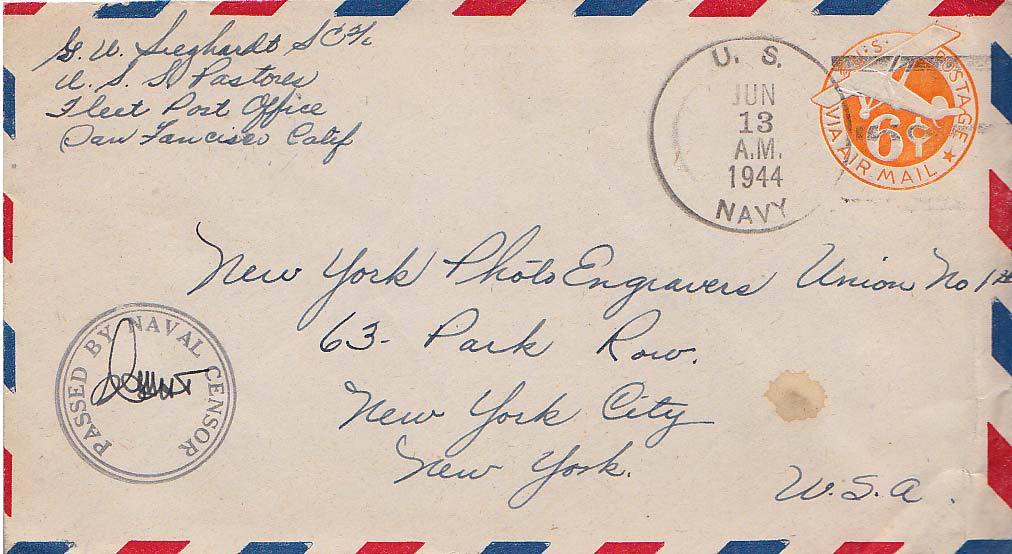 G. U. Sieghardt SC 2/c
U. S. S. Pastores
Fleet Post Office
San Fancisco Calif
U. S.
JUN
13
A.M.
1944
NAVY
U.S. POSTAGE
6¢
VIA AIR MAIL
New York Photo Engravers Union No 1
63 - Park Row.
New York City
New York.
U.S.A.
PASSED BY NAVAL CENSOR